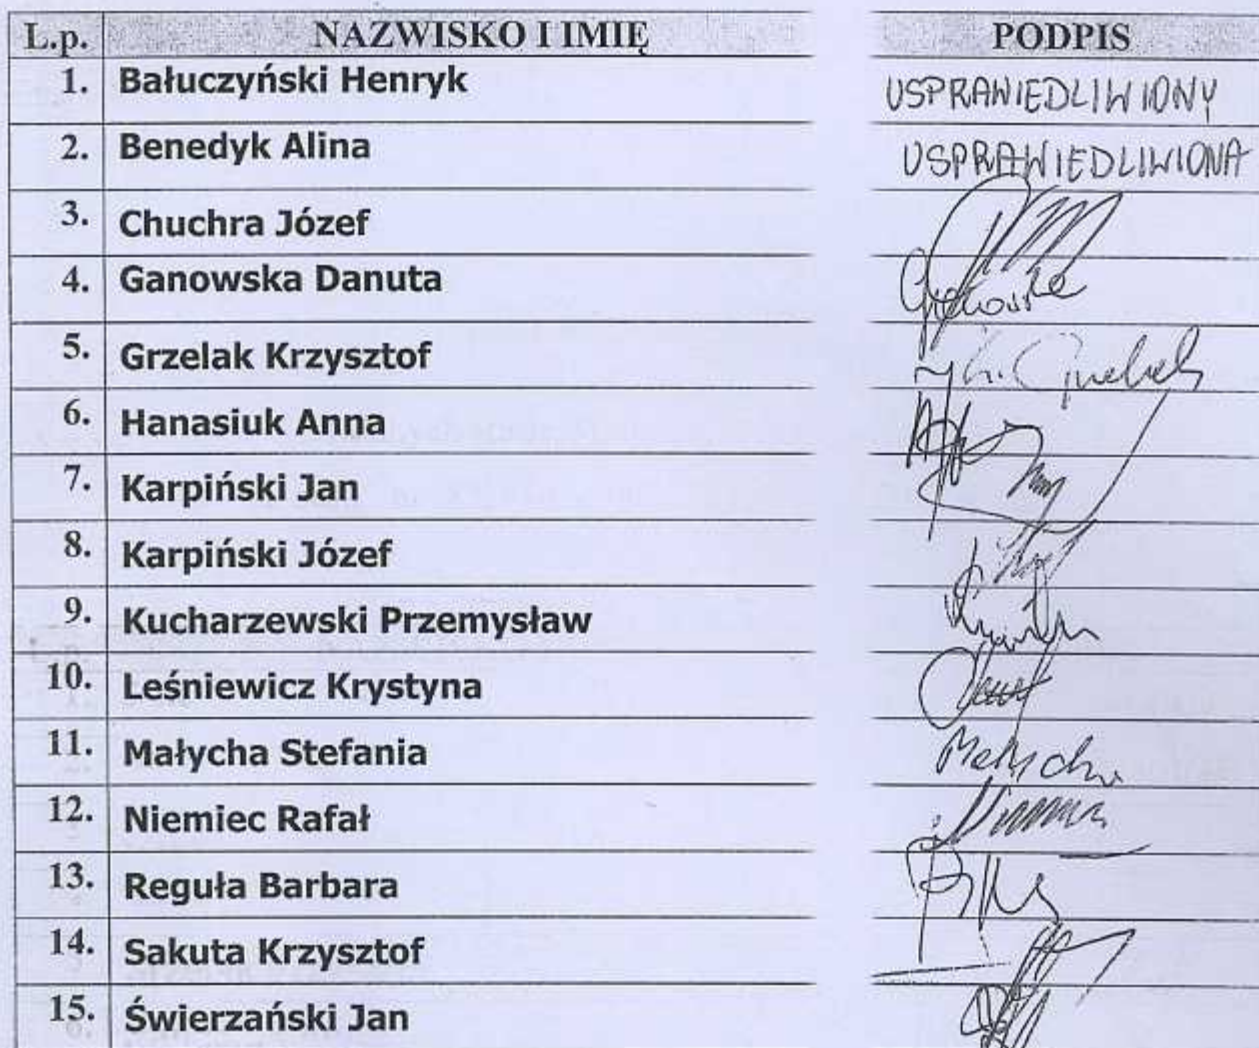 L.p. NAZWISKO I IMIĘ PODPIS
1. Bałuczyński Henryk USPRAWIEDLIWIONY
2. Benedyk Alina USPRAWIEDLIWIONA
3. Chuchra Józef
4. Ganowska Danuta
5. Grzelak Krzysztof
6. Hanasiuk Anna
7. Karpiński Jan
8. Karpiński Józef
9. Kucharzewski Przemysław
10. Leśniewicz Krystyna
11. Małycha Stefania Małycha
12. Niemiec Rafał
13. Reguła Barbara
14. Sakuta Krzysztof
15. Świerzański Jan